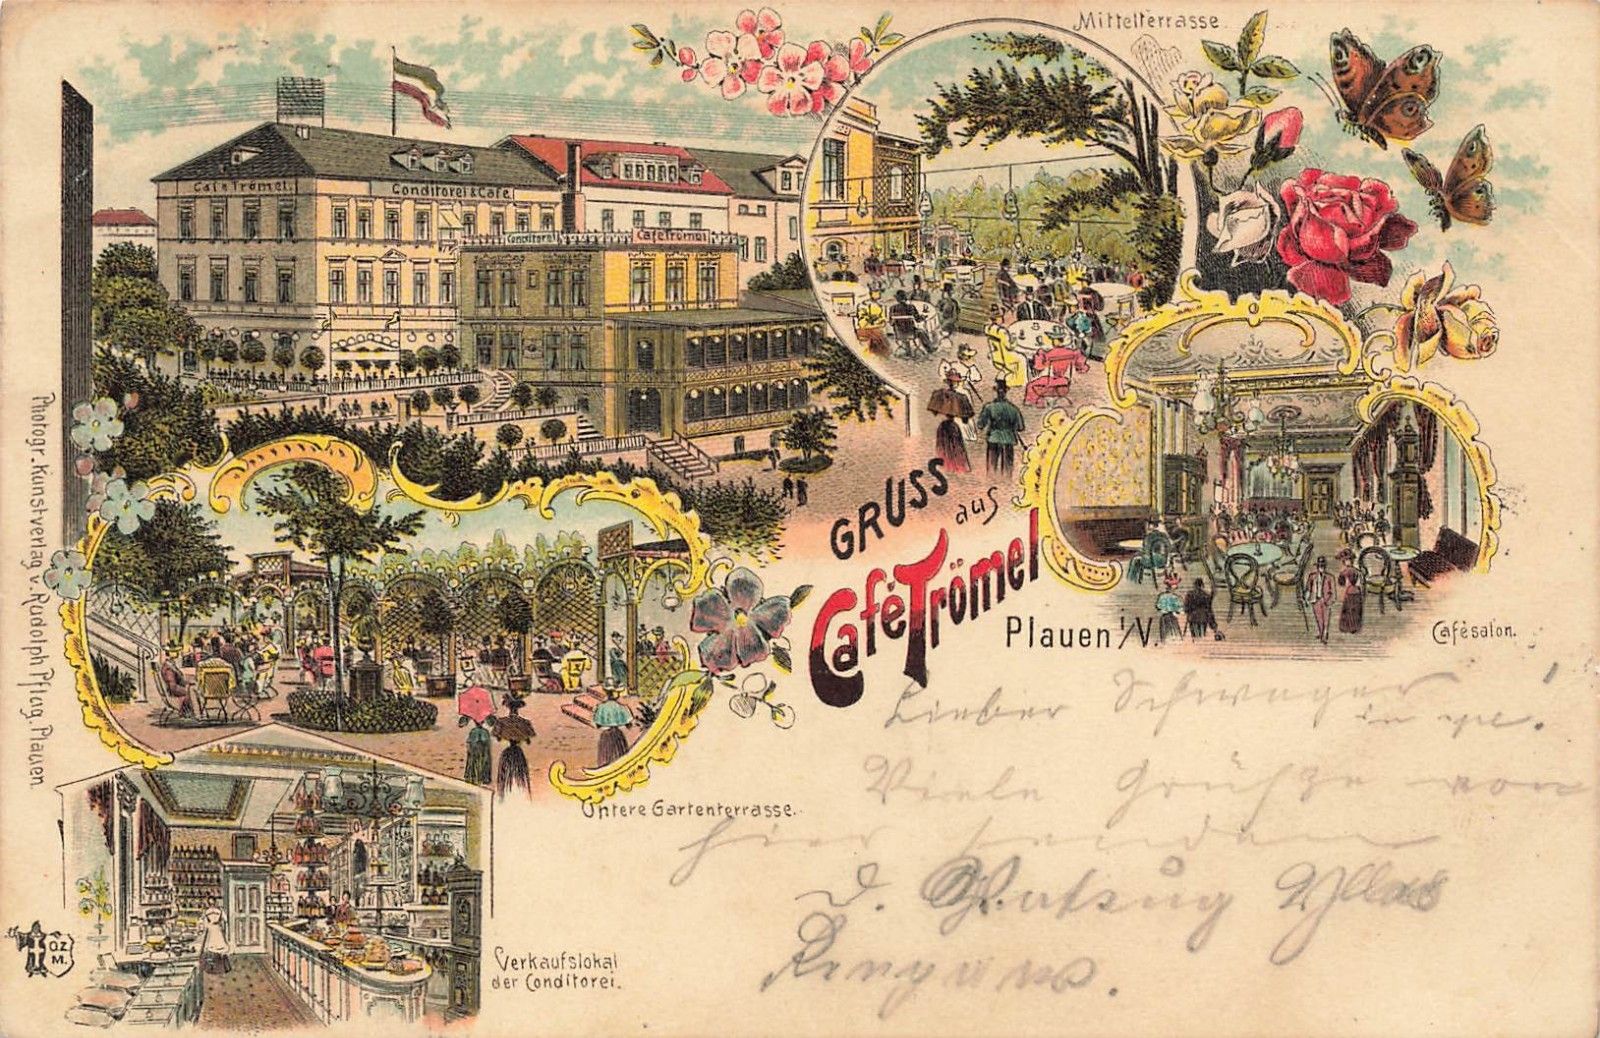 Mittelterrasse.
Café Trömel.
Conditorei & Café.
Conditorei
Café Trömel
GRUSS
aus
Café Trömel
Plauen i/V.
Cafésalon.
Untere Gartenterrasse.
Verkaufslokal
der Conditorei.
Photogr.-Kunstverlag v. Rudolph Pflug. Plauen.
O.Z.
M.
Lieber Schwager!
Viele Grüße von
hier senden